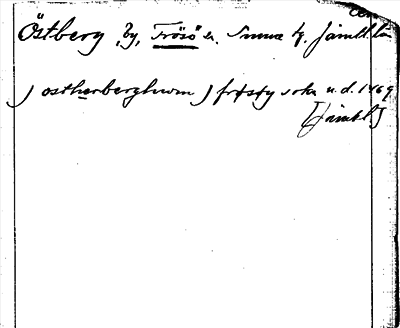 Östberg, by, Frösö sn. Sunne tg. Jämtl. län
) ostherberghwm ) frøsøy sokn u.d. 1469
[Jämtl.]